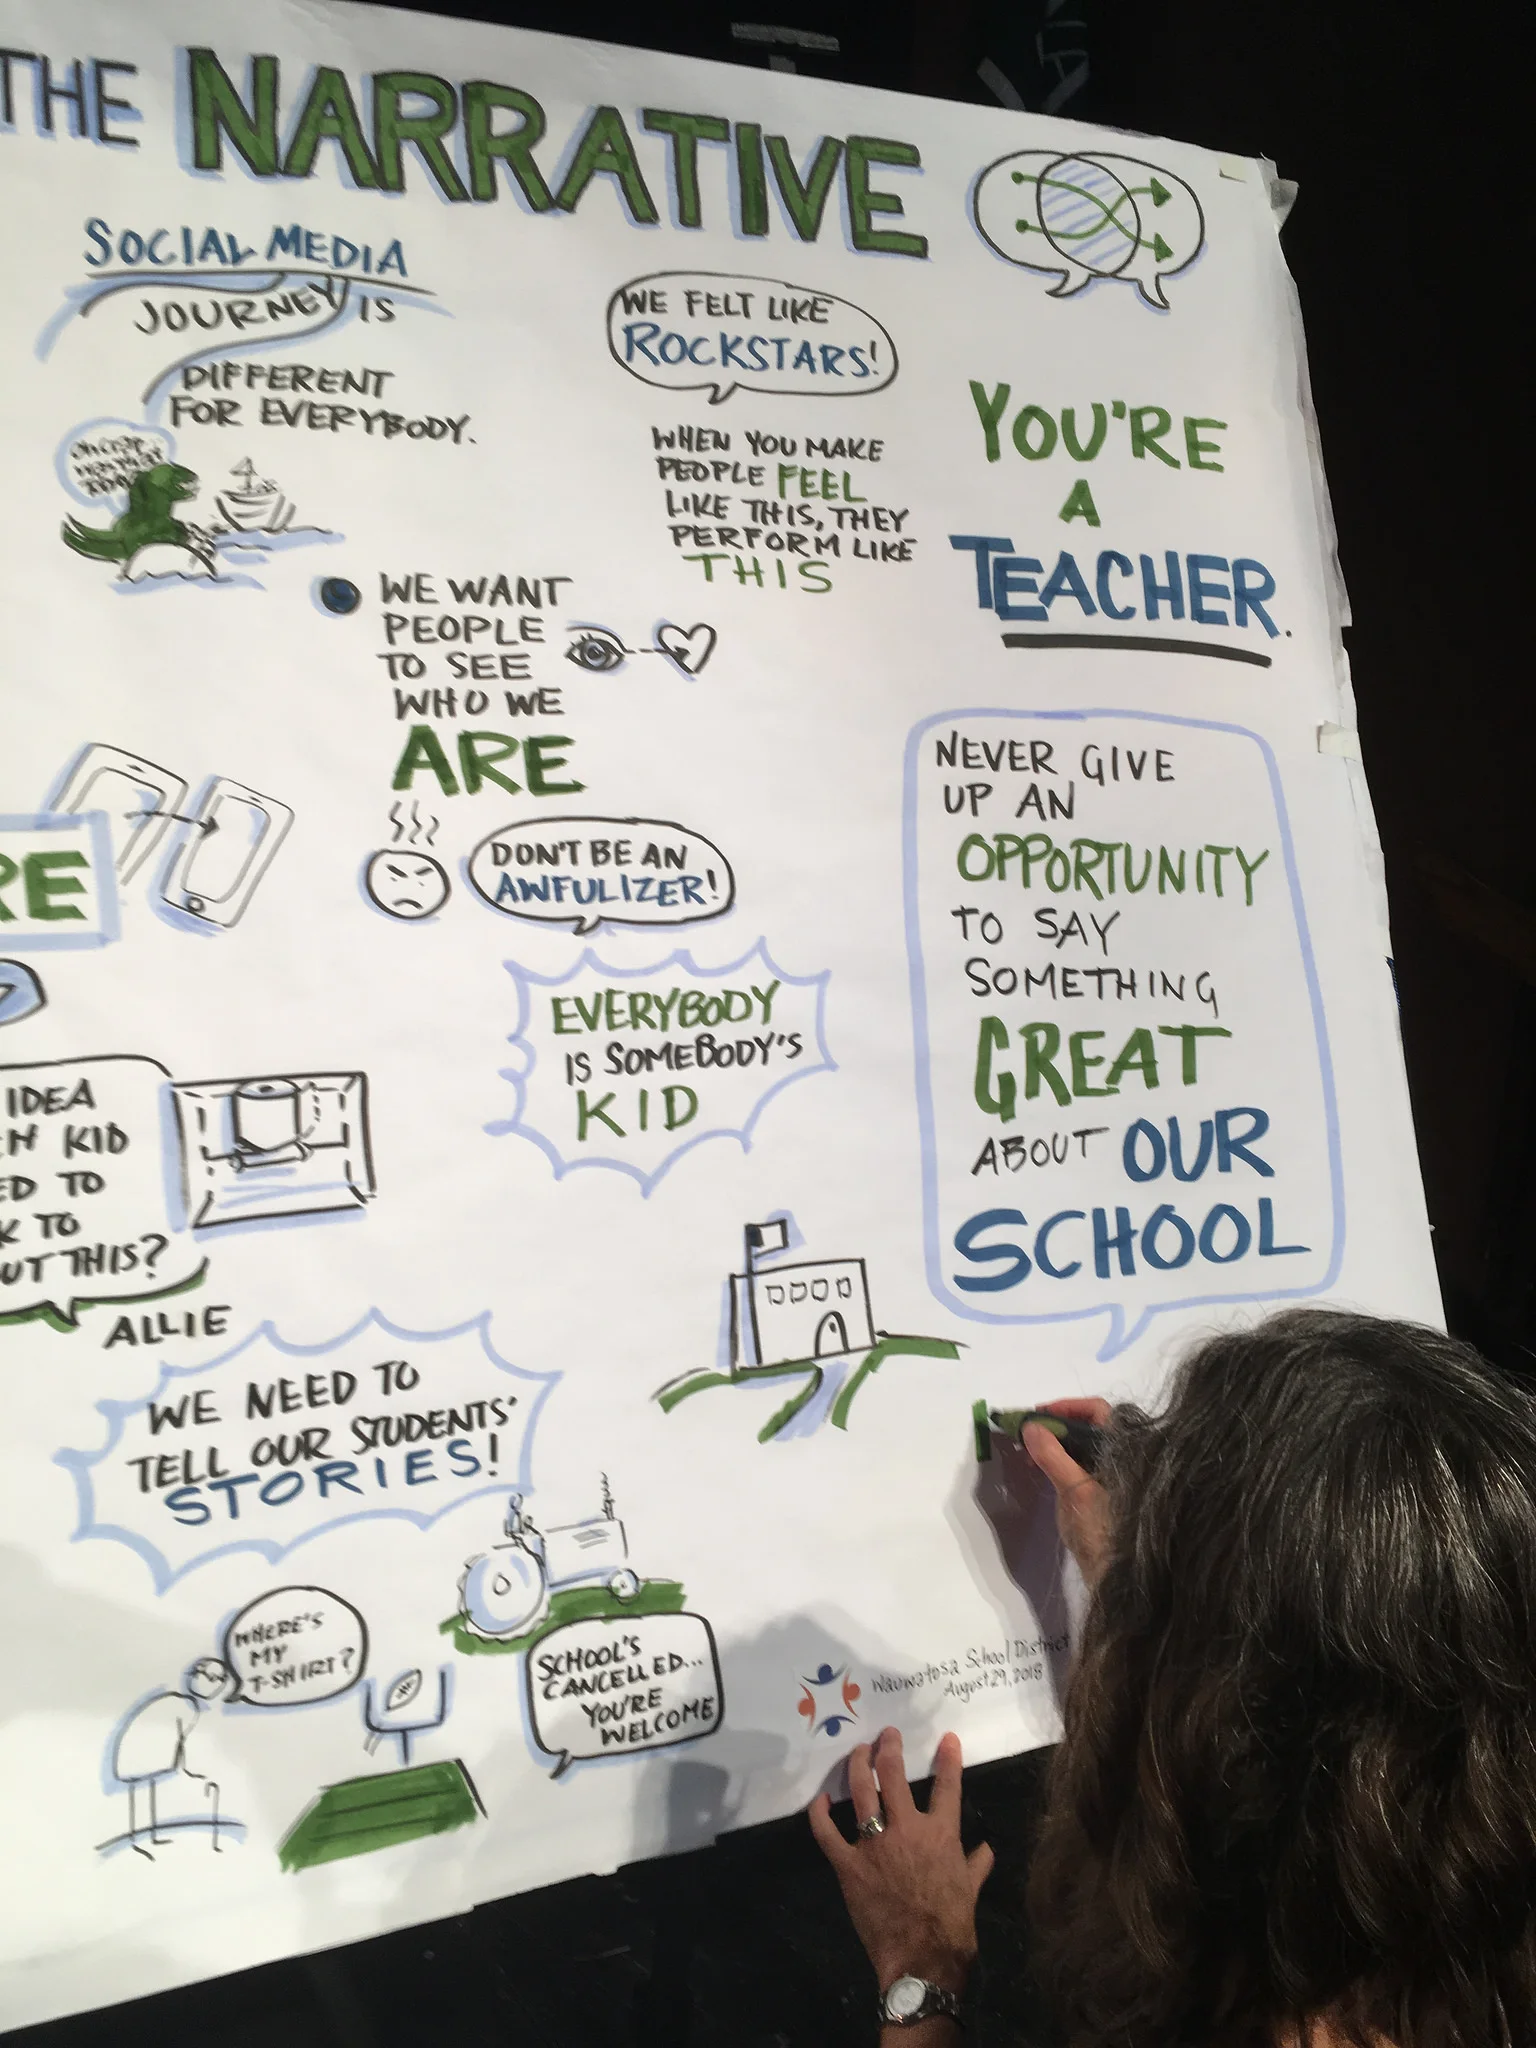 THE NARRATIVE
SOCIAL MEDIA
JOURNEY IS
DIFFERENT
FOR EVERYBODY.
WE FELT LIKE
ROCKSTARS!
WHEN YOU MAKE
PEOPLE FEEL
LIKE THIS, THEY
PERFORM LIKE
THIS
YOU'RE
A
TEACHER.
WE WANT
PEOPLE
TO SEE
WHO WE
ARE
DON'T BE AN
AWFULIZER!
EVERYBODY
IS SOMEBODY'S
KID
NEVER GIVE
UP AN
OPPORTUNITY
TO SAY
SOMETHING
GREAT
ABOUT OUR
SCHOOL
RE
IDEA
KID
ED TO
K TO
UT THIS?
ALLIE
WE NEED TO
TELL OUR STUDENTS'
STORIES!
WHERE'S
MY
T-SHIRT?
SCHOOL'S
CANCELLED...
YOU'RE
WELCOME
Wauwatosa School District
August 29, 2018